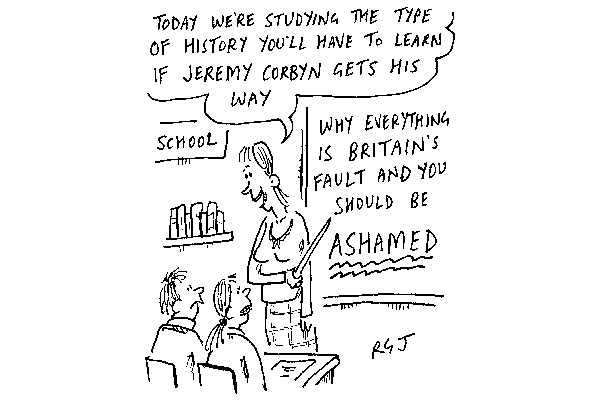 TODAY WE'RE STUDYING THE TYPE
OF HISTORY YOU'LL HAVE TO LEARN
IF JEREMY CORBYN GETS HIS
WAY
SCHOOL
WHY EVERYTHING
IS BRITAIN'S
FAULT AND YOU
SHOULD BE
ASHAMED
RGJ